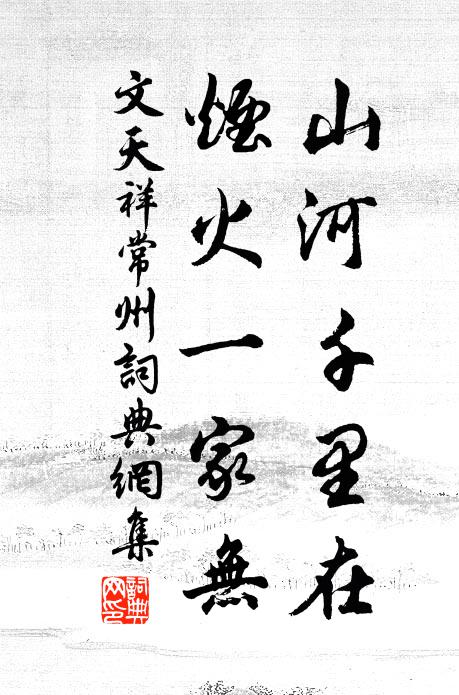 山河千里在
煙火一家無
文天祥常州詞典網集
詞典网印